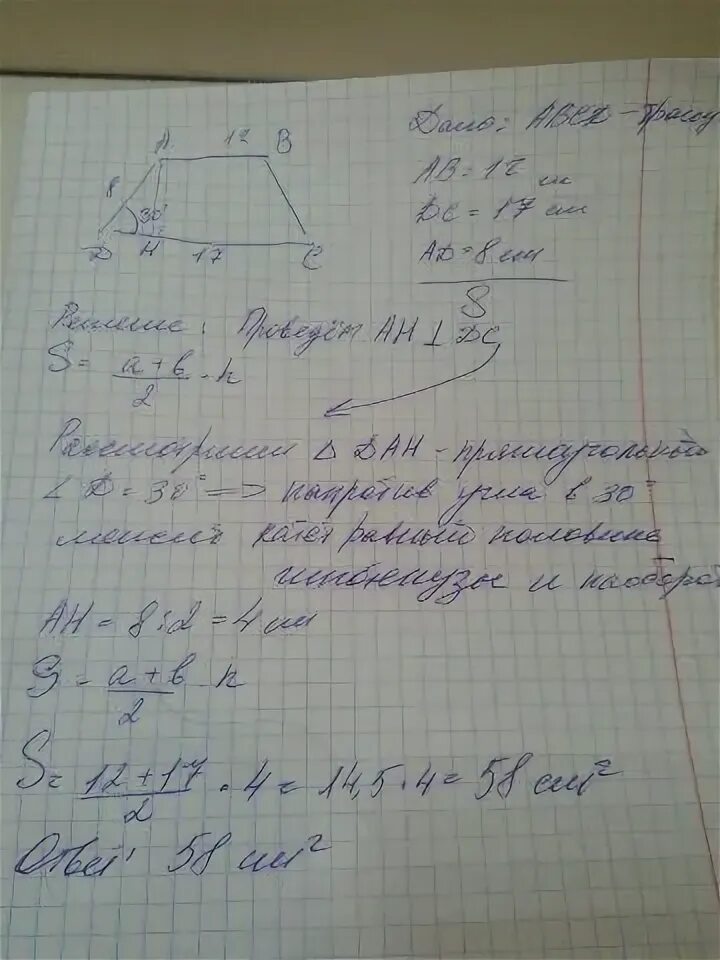 A 12 B
8 30°
D H 17 C
Дано: ABCD - трапец
AB = 12 см
DC = 17 см
AD = 8 см
S
Решение: Проведём AH ⊥ DC
S = a + b / 2 · h
Рассмотрим △ DAH - прямоугольный
∠ D = 30° => напротив угла в 30°
лежит катет равный половине
гипотенузы и наоборот
AH = 8 : 2 = 4 см
S = a + b / 2 h
S = 12 + 17 / 2 · 4 = 14,5 · 4 = 58 см²
Ответ: 58 см²